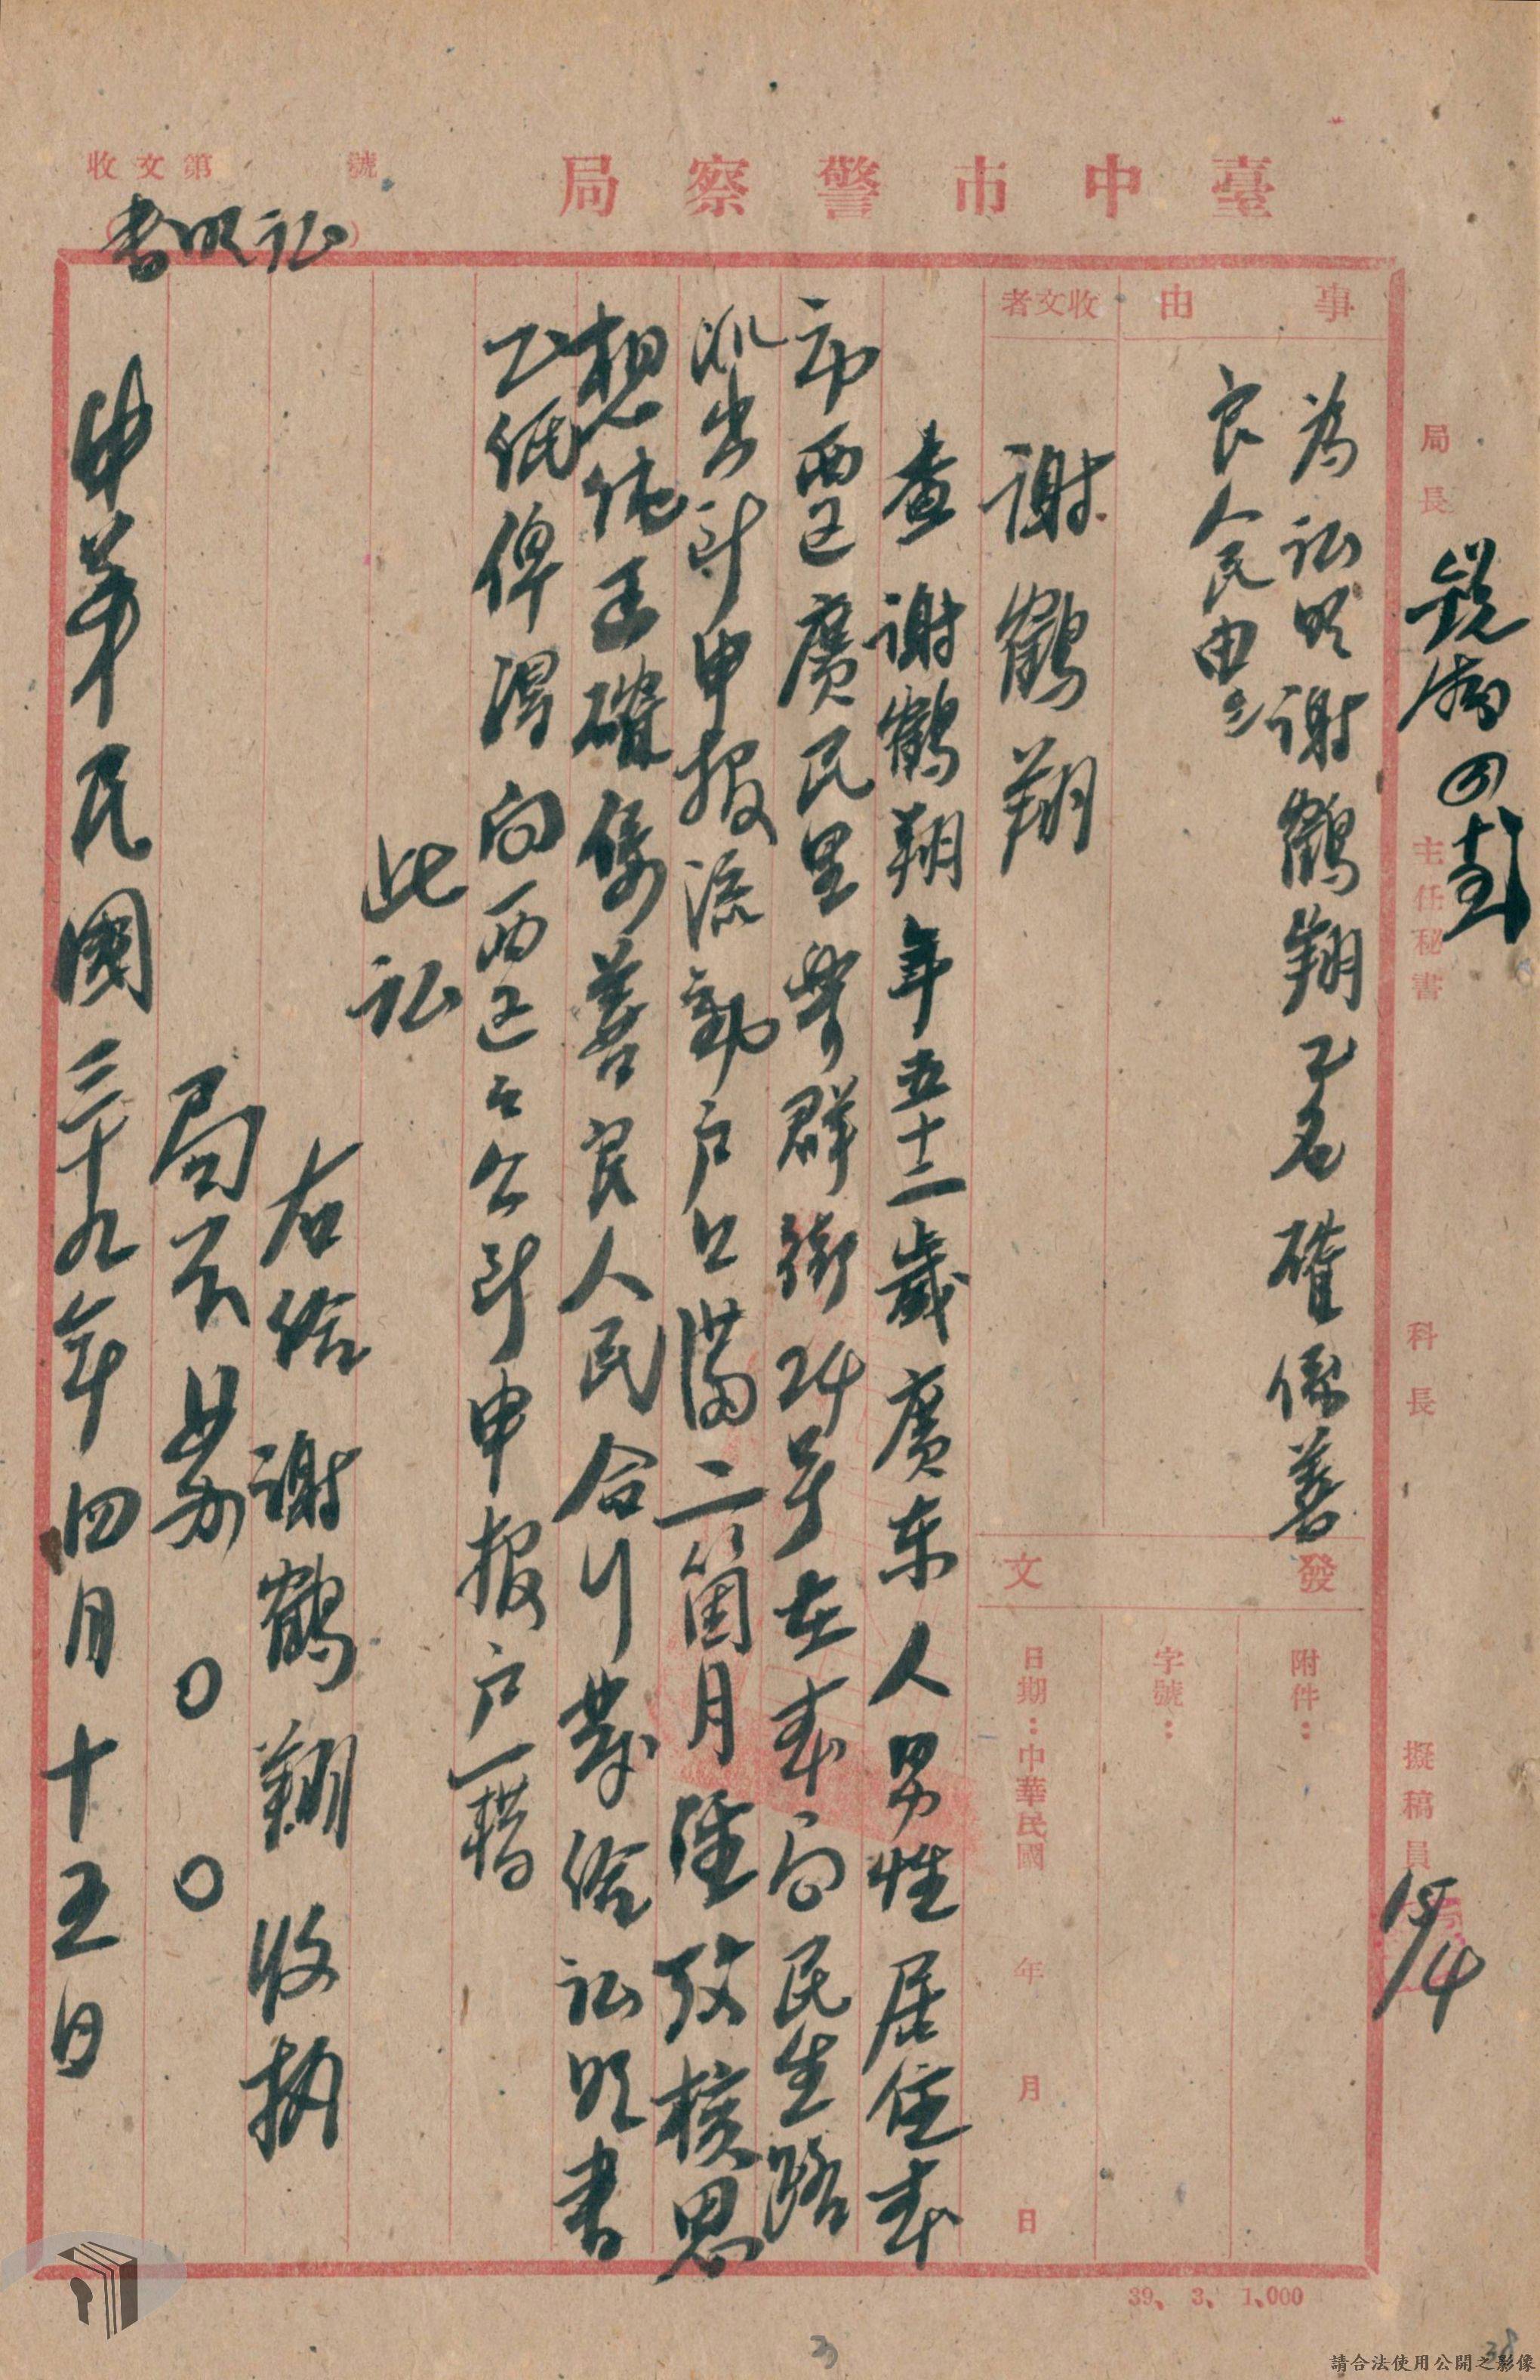 臺中市警察局
收文第 號
証明書
局長
主任秘書
科長
擬稿員
15/4
事由
為証明謝鶴翔乙名確係善
良人民由
收文者
謝鶴翔
發文
附件：
字號：
日期：中華民國 年 月 日
查謝鶴翔年五十二歲廣東人男性居住本
市西區廣民里學群街24号在本局民生路
派出所申报流動户口滿二箇月經攷核思
想純正確係善良人民合行發給証明書
乙紙俾得向西區公所申报户籍
此証
右給謝鶴翔收执
局長 ○○
中華民國三十九年四月十五日
39、3、1,000
請合法使用公開之影像